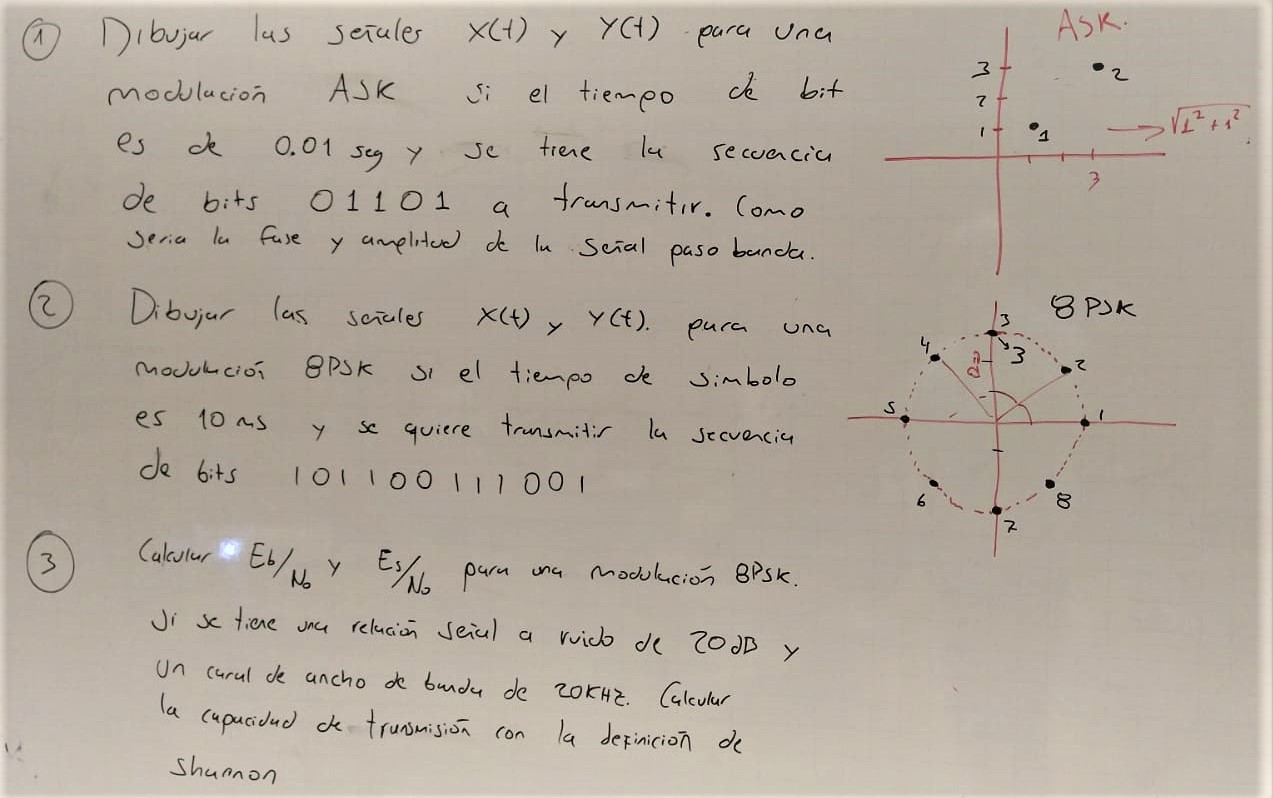 1 Dibujar las señales X(t) y Y(t) para una
modulación ASK si el tiempo de bit
es de 0.01 seg y se tiene la secuencia
de bits 01101 a transmitir. Como
seria la fase y amplitud de la señal paso banda.
ASK.
3
2
2
1
1
√1²+1²
3
2 Dibujar las señales X(t) y Y(t). para una
modulación 8PSK si el tiempo de simbolo
es 10 ms y se quiere transmitir la secuencia
de bits 101100111001
8 PSK
3
4
3
2
5
1
6
8
7
3 Calcular Eb/No y Es/No para una modulación 8PSK.
si se tiene una relación señal a ruido de 20 dB y
un canal de ancho de banda de 20KHz. Calcular
la capacidad de transmisión con la definición de
Shannon